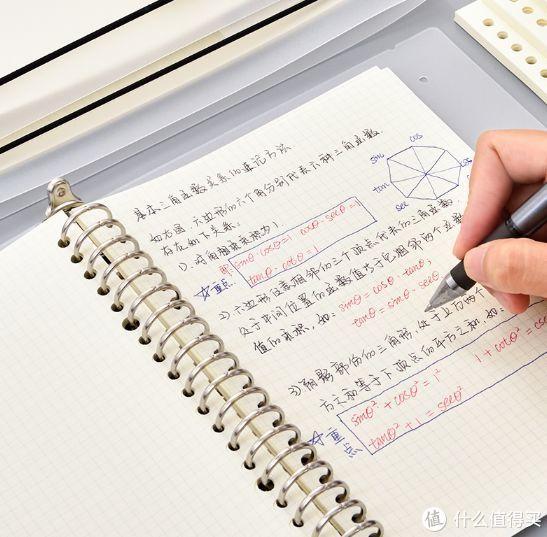 基本三角函数关系的速记方法
如右图,六边形的六个角分别代表六种三角函数.
存在如下关系:
1) 对角相乘乘积为1
即 sinθ·cscθ=1 cosθ·secθ=1
tanθ·cotθ=1
重点
2) 六边形任意相邻的三个顶点代表的三角函数,
处于中间位置的函数值等于它相邻两个函数
值的乘积,如: sinθ = cosθ·tanθ;
tanθ = sinθ·secθ
3) 阴影部份的三角形,处于上方两个
方之和等于下顶点的平方之和,如:
sinθ²+cosθ²=1² 1+cotθ²=
重点
tanθ²+1=secθ²
sin
cos
tan
sec
值 什么值得买